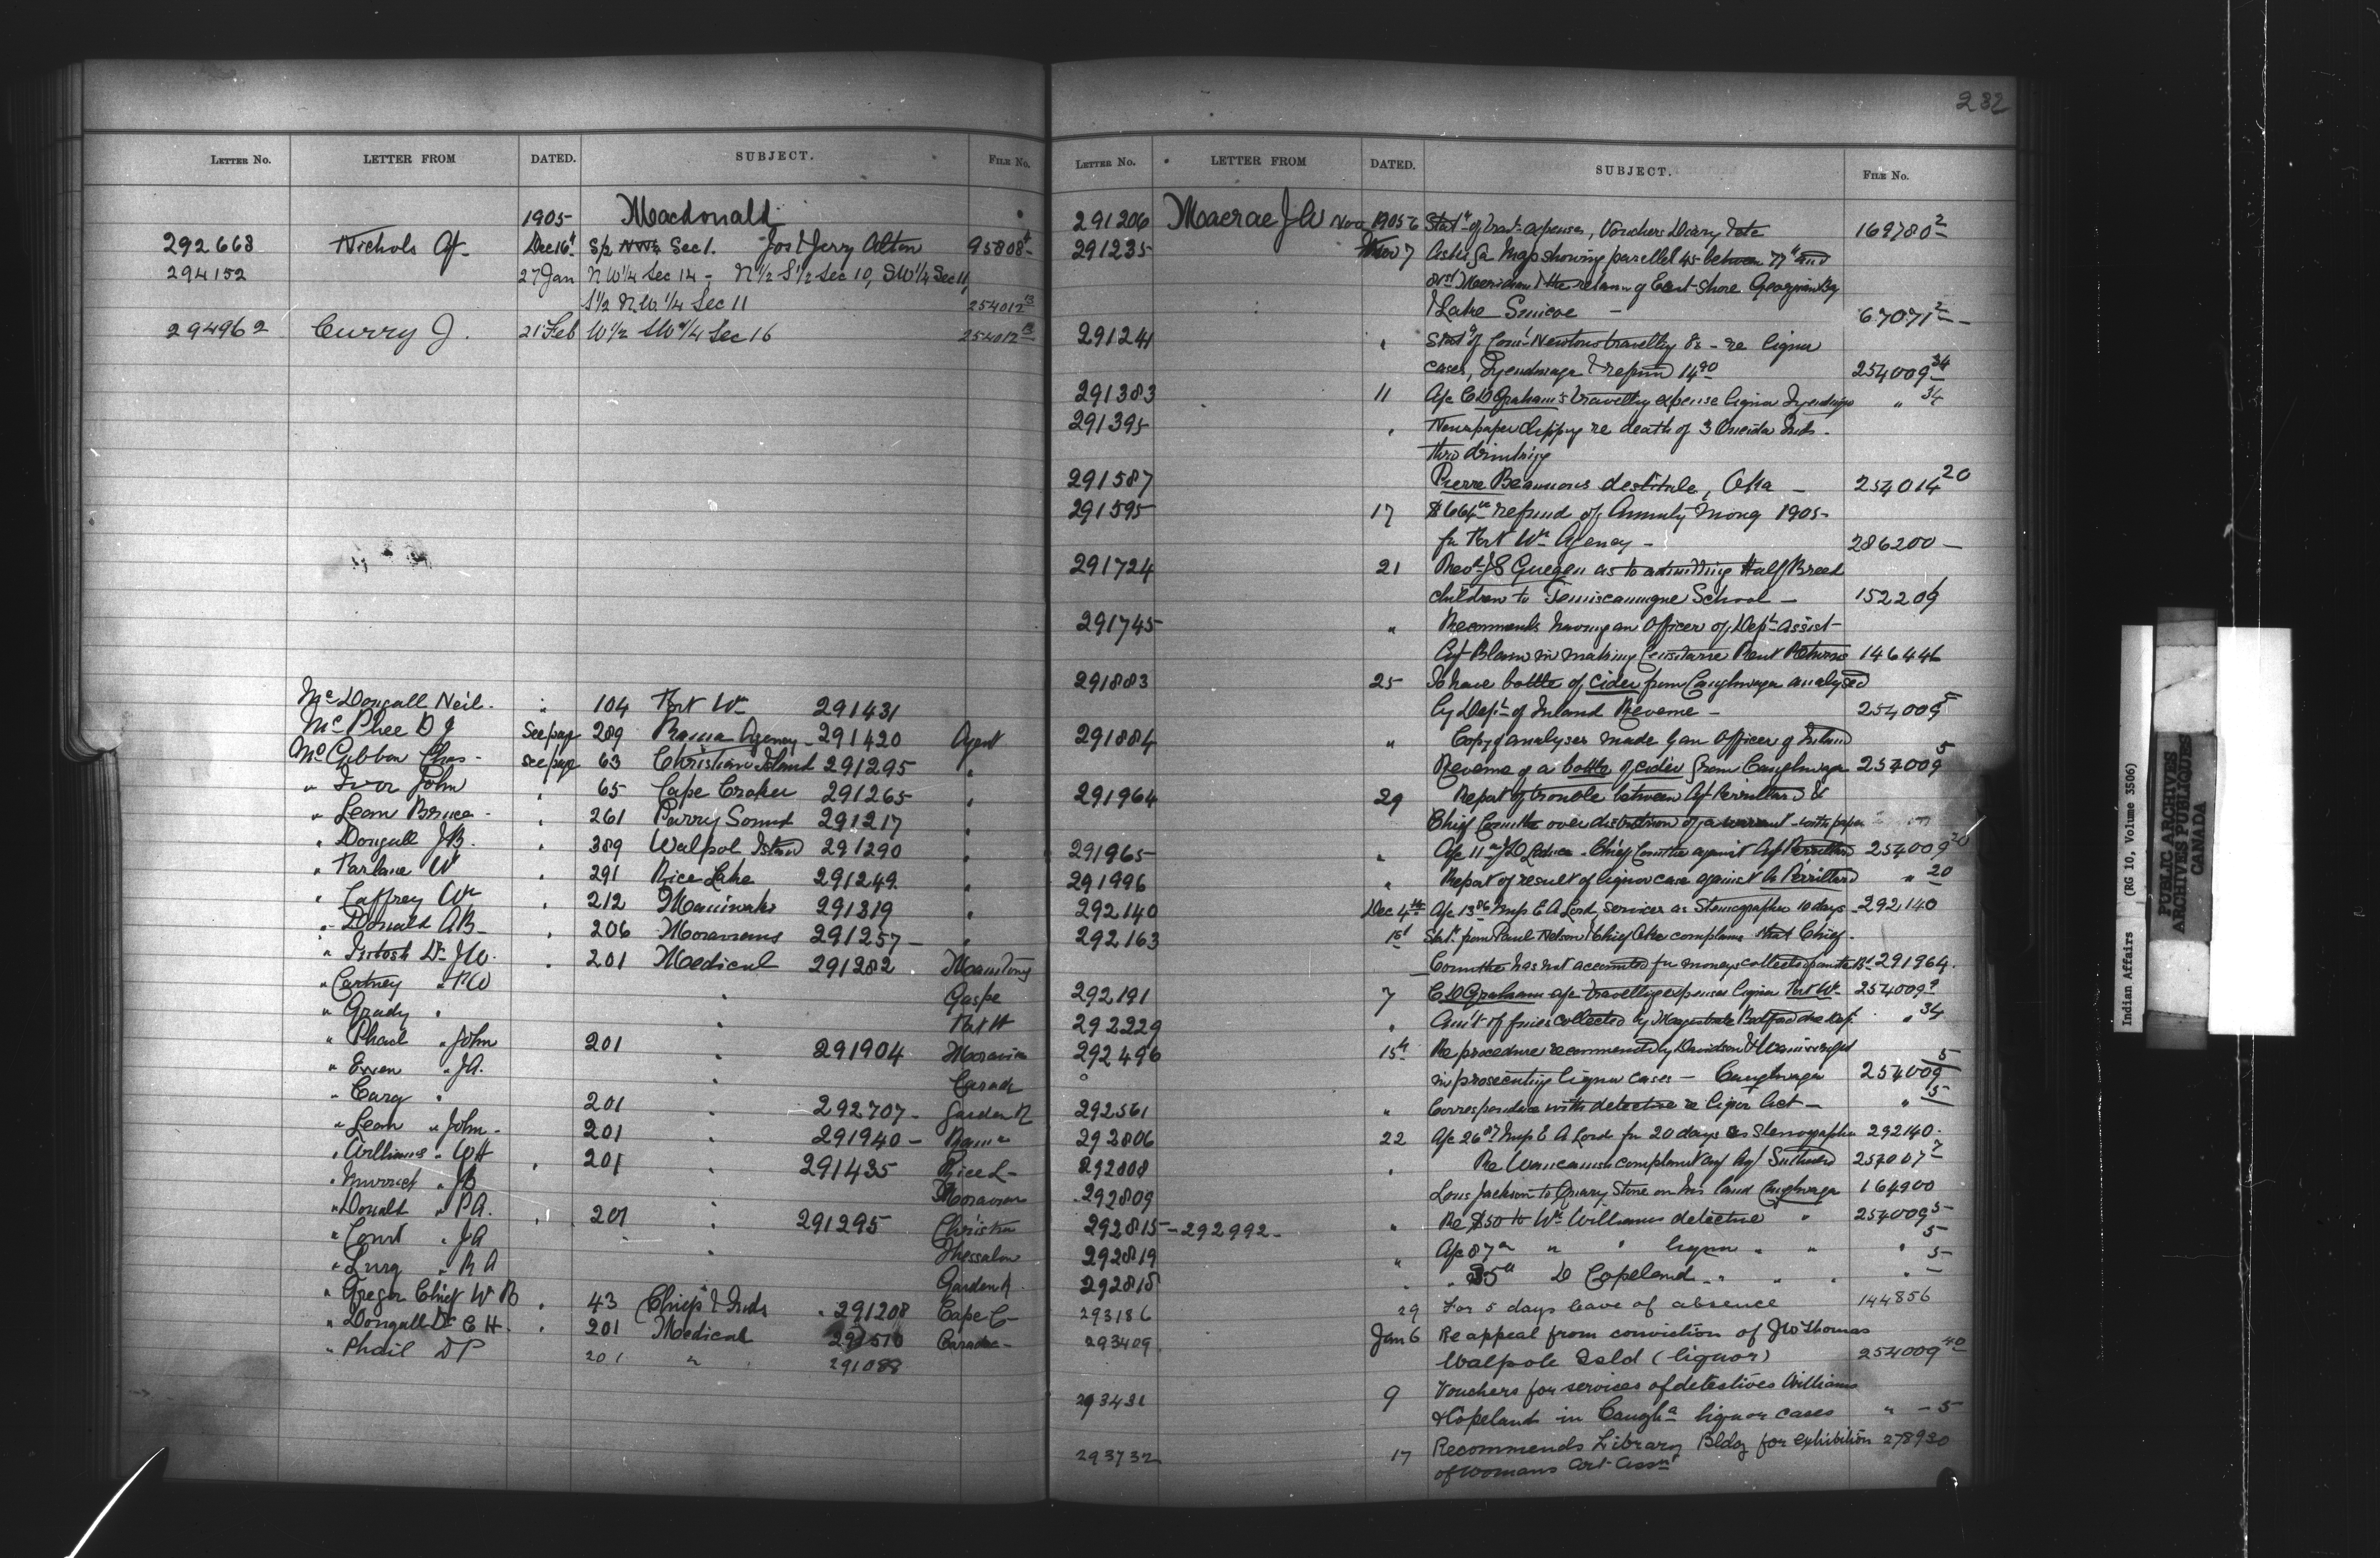 232
LETTER NO. LETTER FROM DATED. SUBJECT. FILE NO.
1905 Macdonald
292668 Nichols Agt Dec 16th S/2 Sec 1. Jos & Jerry Alton 95808
294152 27 Jan N W 1/4 Sec 14 - N 1/2 S 1/2 Sec 10, SW 1/4 Sec 11,
S 1/2 N.W. 1/4 Sec 11 254012 13
294962 Curry J. 21 Feb W 1/2 SW 1/4 Sec 16 254012 13
Mc Dougall Neil. " 104 Fort Wm 291431
Mc Phee D J See page 289 Rama Agency - 291420 Agent
Mc Gibbon Chas - See page 63 Christian Island 291295 "
" Ivor John " 65 Cape Croker 291265 "
" Lean Bruce - " 261 Parry Sound 291217 "
" Dougall J.B. " 389 Walpol Island 291290 "
" Farlane W " 291 Rice Lake 291249 "
" Caffrey Wm " 212 Maniwaki 291319 "
" Donald A B - " 206 Moravians 291257 - "
" Intosh Dr J W. " 201 Medical 291282
" Cartney " " Gaspe
" Grady " " Fort W
" Phail " John 201 291904 Moravian
" Ewen " J A. " Caradc
" Carg " 201 " 292707 - Garden R
" Lean " John - 201 " 291940 - Rama
" Williams " W H " 201 " 291435 Rice L -
" " J B Moravian
" Donald " P A. " 201 " 291295 Christn
" Court " J A " Thessalon
" Lurg " R A Garden R.
" Gregor Chief W B " 43 Chiefs & Inds " 291208 Cape C -
" Dougall Dr C H. " 201 Medical 291510 Caradoc -
" Phail D P 201 " 291088
LETTER NO. LETTER FROM DATED. SUBJECT. FILE NO.
291206 Macrae J W Nov 1905 6 Stat of trav. expenses, Vouchers Diary etc 169780 2
291235 Nov 7 Asks for Map showing parellel 45 between 77th and
81st Meridian & the relation of East shore Georgian Bay
& Lake Simcoe - 67071 2 -
291241 " Stat of Const Newtons travelling Ex - re liquor
cases, Tyendinaga & refund 14 90 254009 34
291383 11 A/c C D Graham's travelling expense liquor Tyendinga " 34
291395 " Newspaper clipping re death of 3 Oneida Inds -
thro drinking
291587 Pierre Beauvais destitute, Oka - 254014 20
291595 17 $664 refund of Annuity Money 1905 -
for Fort Wm Agency - 286200 -
291724 21 Revd J S Gueguen as to admitting Half Breed
children to Temiscamingue School - 152209
291745 " Recommends having an Officer of Dept assist
Agt Blain in making Censitaire Rent Returns 146446
291883 25 To have bottle of cider from Caughnwaga analysed
by Dept of Inland Revenue - 254009 5
291884 " Copy of analyses made by an Officer of Inland
Revenue of a bottle of cider from Caughnwaga 254009 5
291964 29 Report of trouble between Agt Perrillard &
Chief over of a warrant - with paper
291965 " A/c 11 - Chief against Agt Perrillard 254009 20
291996 " Report of result of liquor case against A. Perrillard " 20
292140 Dec 4th A/c 13 86 Miss E A Lord, services as Stenographer 10 days - 292140
292163 15th Stat. from Paul Nelson Chief Oka complains that Chief
has not accounted for moneys collected 291964.
292191 7 C D Graham a/c travelling expenses liquor Fort Wm 254009 9
292229 " Amt of fines collected by Magistrate Bedford " 34
292496 15th Re procedure recommended by Davidson & Wainwright
in prosecuting liquor cases - Caughnwaga 254009 5
292561 " Correspondce with detective re liquor Act - " 5
292806 22 A/c 26 87 Miss E A Lord for 20 days as Stenographer 292140 -
292808 " Re complaint agt Agt 254007 7
292809 Louis Jackson to Quarry Stone on his land Caughnwaga 164900
292815 - 292992 - " Re $50 to Wm Williams detective " 254009 5
292819 " A/c 87 " " liquor " " " 5
292818 " " 35 D Copeland " " " " 5
293186 29 For 5 days leave of absence 144856
293409 Jan 6 Re appeal from conviction of J W Thomas
Walpole Isld (liquor) 254009 40
293431 9 Vouchers for services of detectives Williams
& Copeland in Caugha liquor cases " - 5
293732 17 Recommends Library Bldg for exhibition 278930
of Womans Art Assn
Indian Affairs (RG 10, Volume 3506)
PUBLIC ARCHIVES
ARCHIVES PUBLIQUES
CANADA